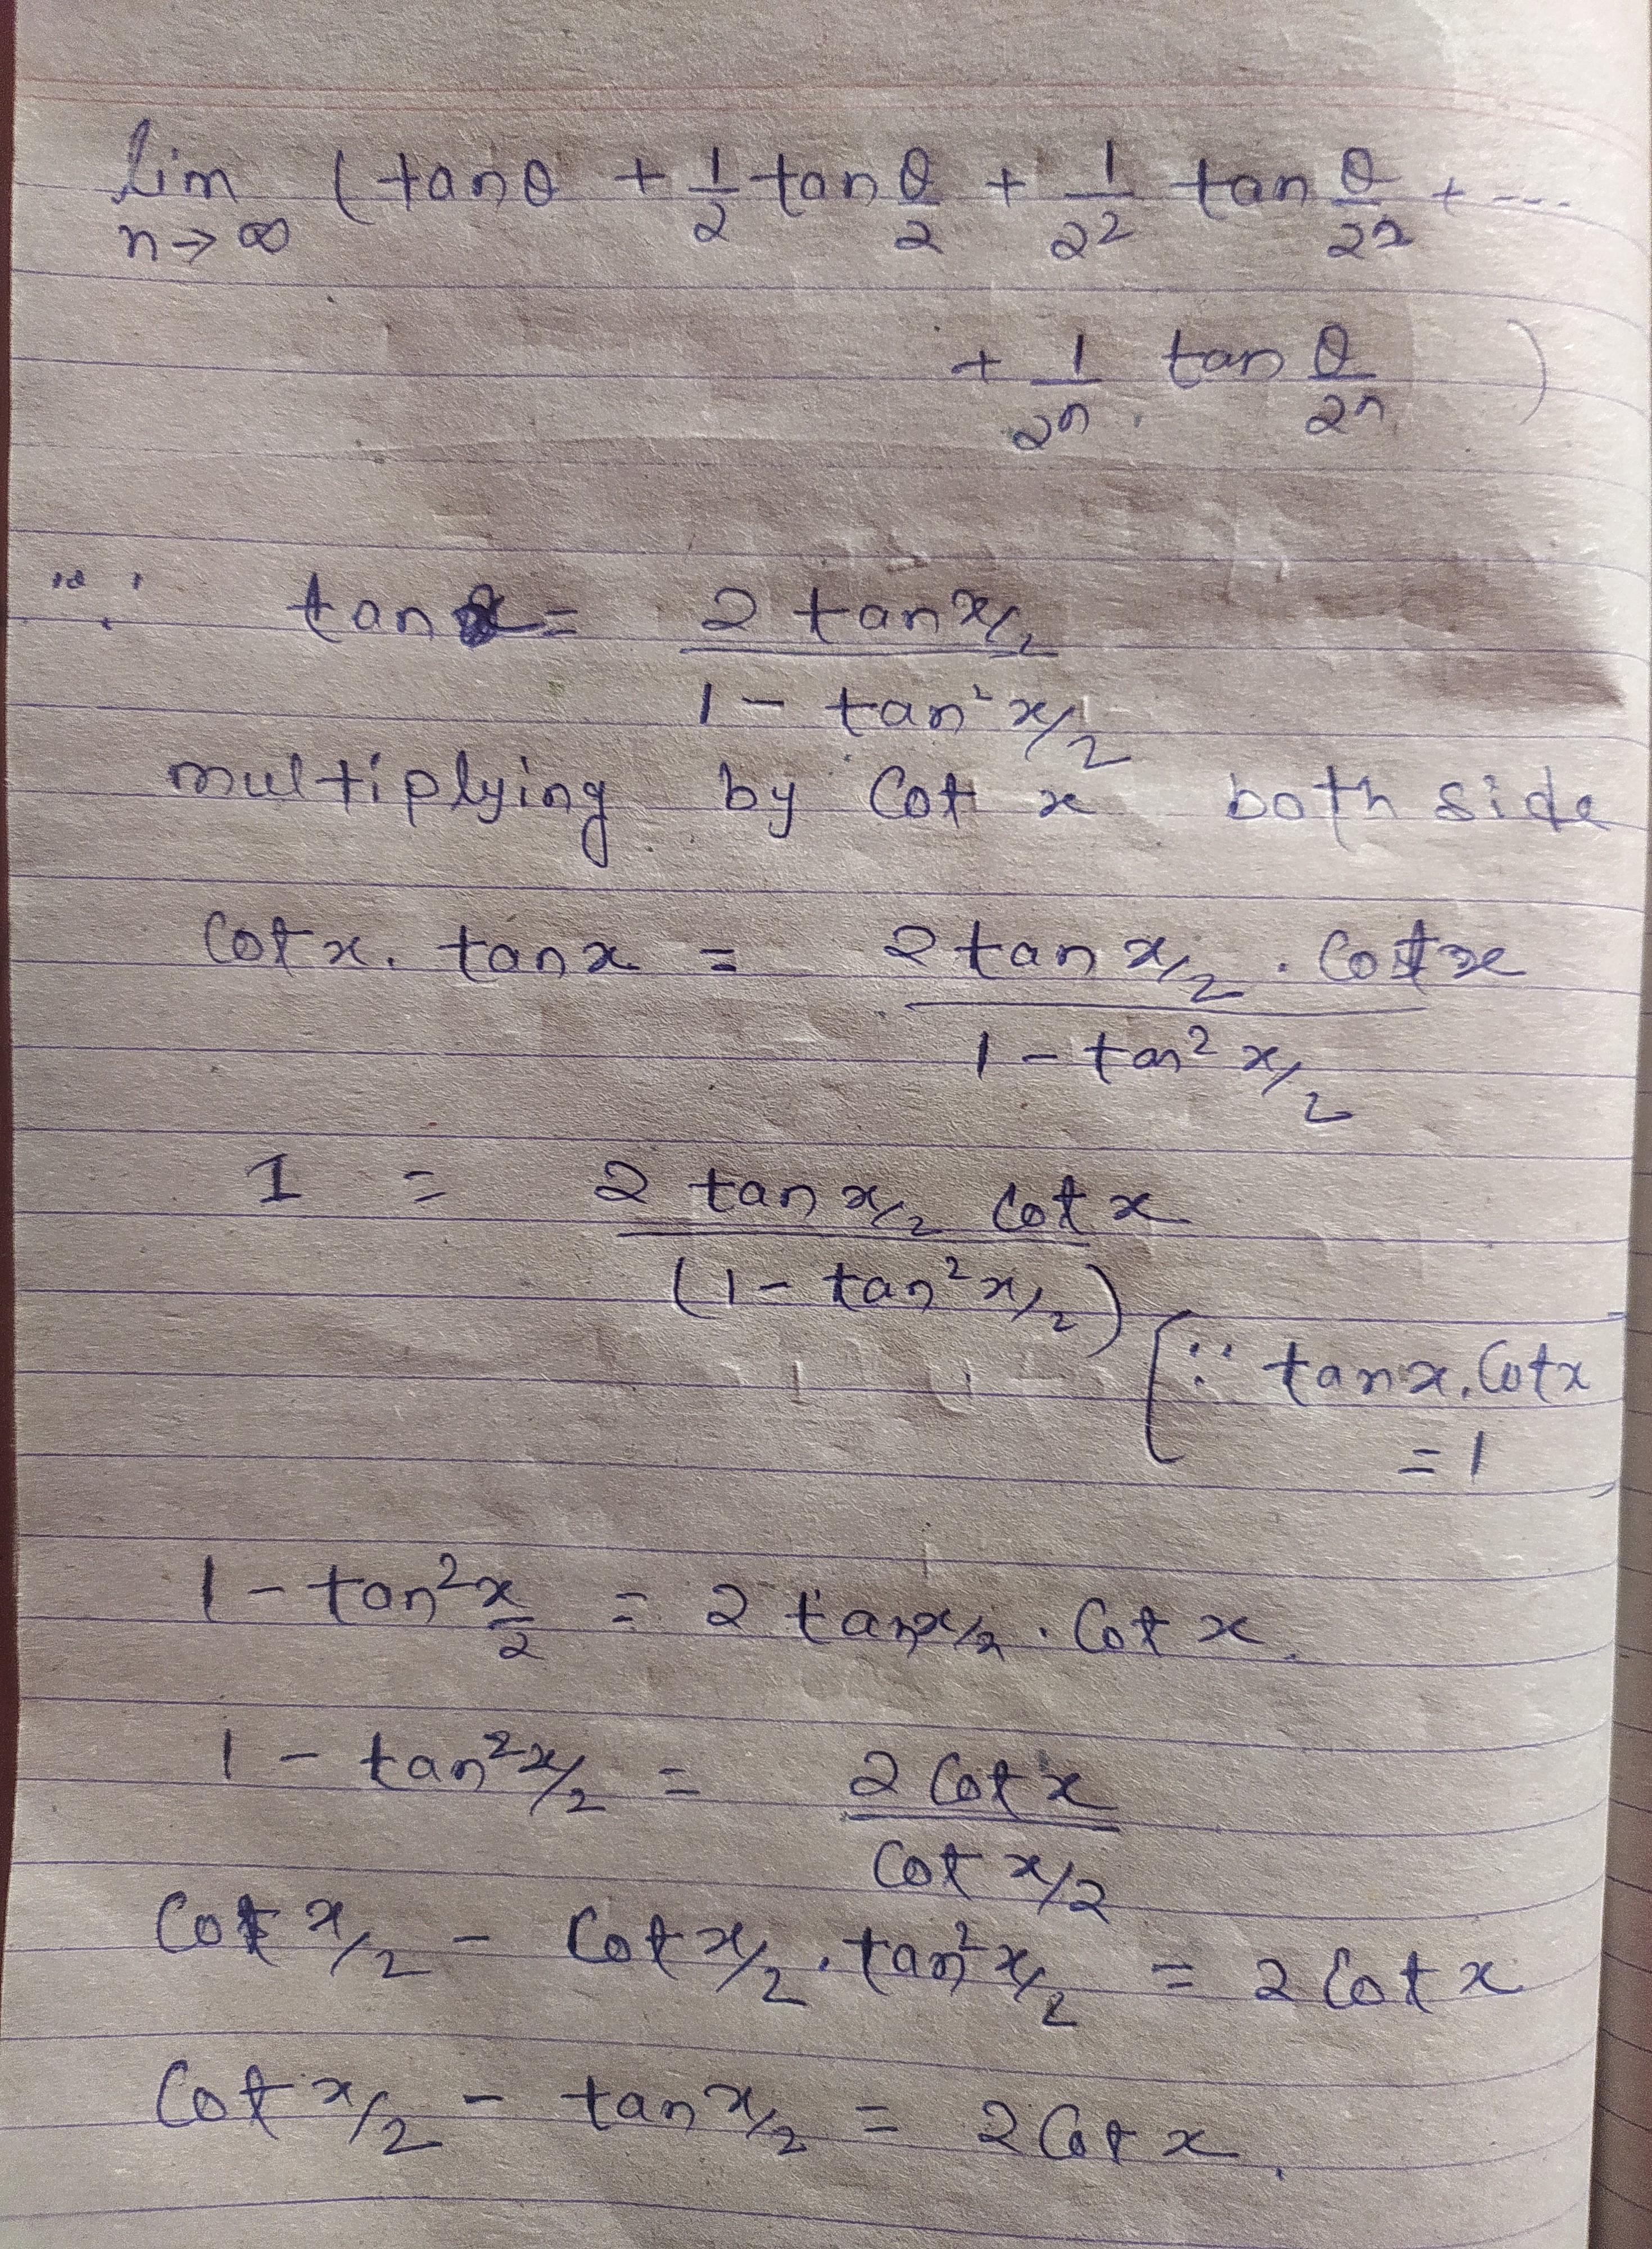 lim n→∞ (tanθ + 1/2 tan θ/2 + 1/2² tan θ/2² + ---
+ 1/2ⁿ . tan θ/2ⁿ )
∵ tanx = 2 tan x/2 / 1 - tan² x/2
multiplying by Cot x both side
Cot x . tan x = 2 tan x/2 . Cot x / 1 - tan² x/2
1 = 2 tan x/2 Cot x / (1 - tan² x/2)
[∵ tan x . Cot x
= 1
1 - tan² x/2 = 2 tan x/2 . Cot x.
1 - tan² x/2 = 2 Cot x / Cot x/2
Cot x/2 - Cot x/2 . tan² x/2 = 2 Cot x
Cot x/2 - tan x/2 = 2 Cot x.